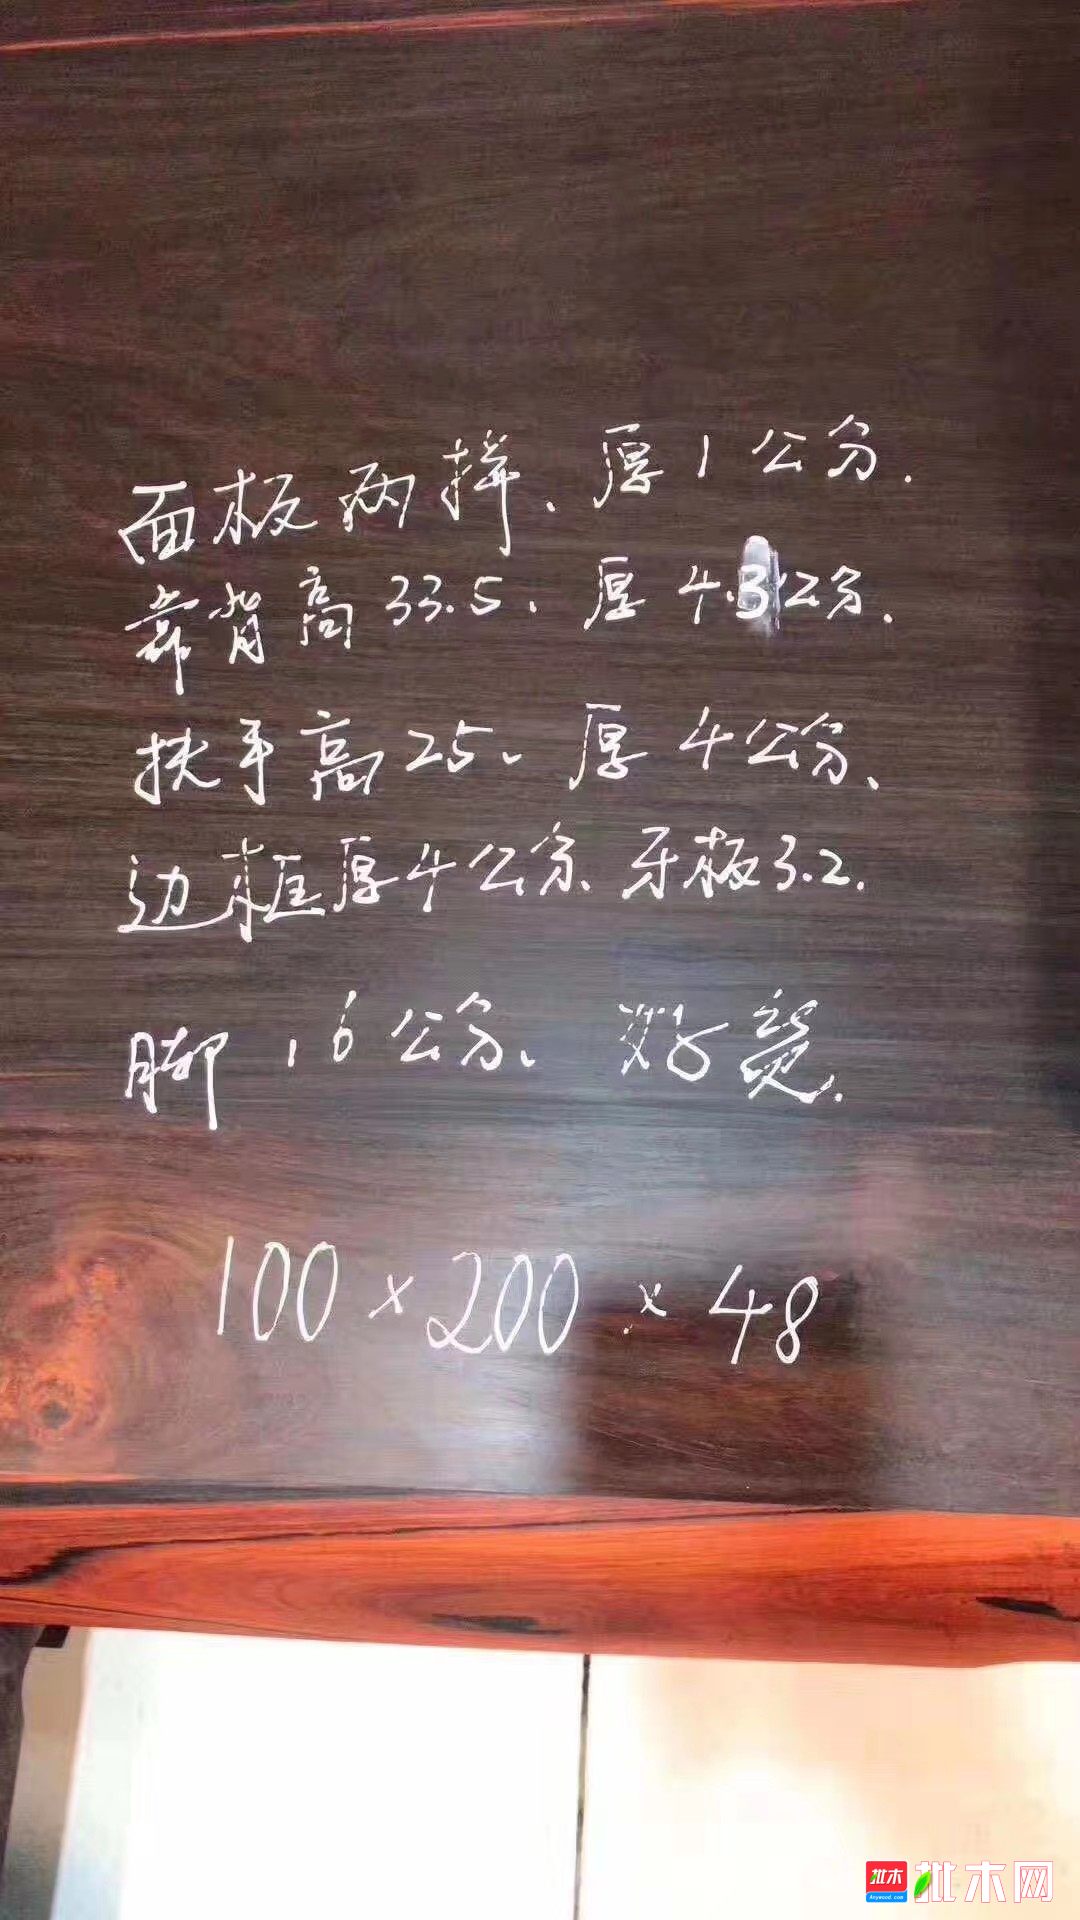 面板两拼、厚1公分.
靠背高33.5.厚4.3公分.
扶手高25、厚4公分、
边框厚4公分、牙板3.2.
脚,6公分、
100×200×48
批木
Anywood.com
批木网